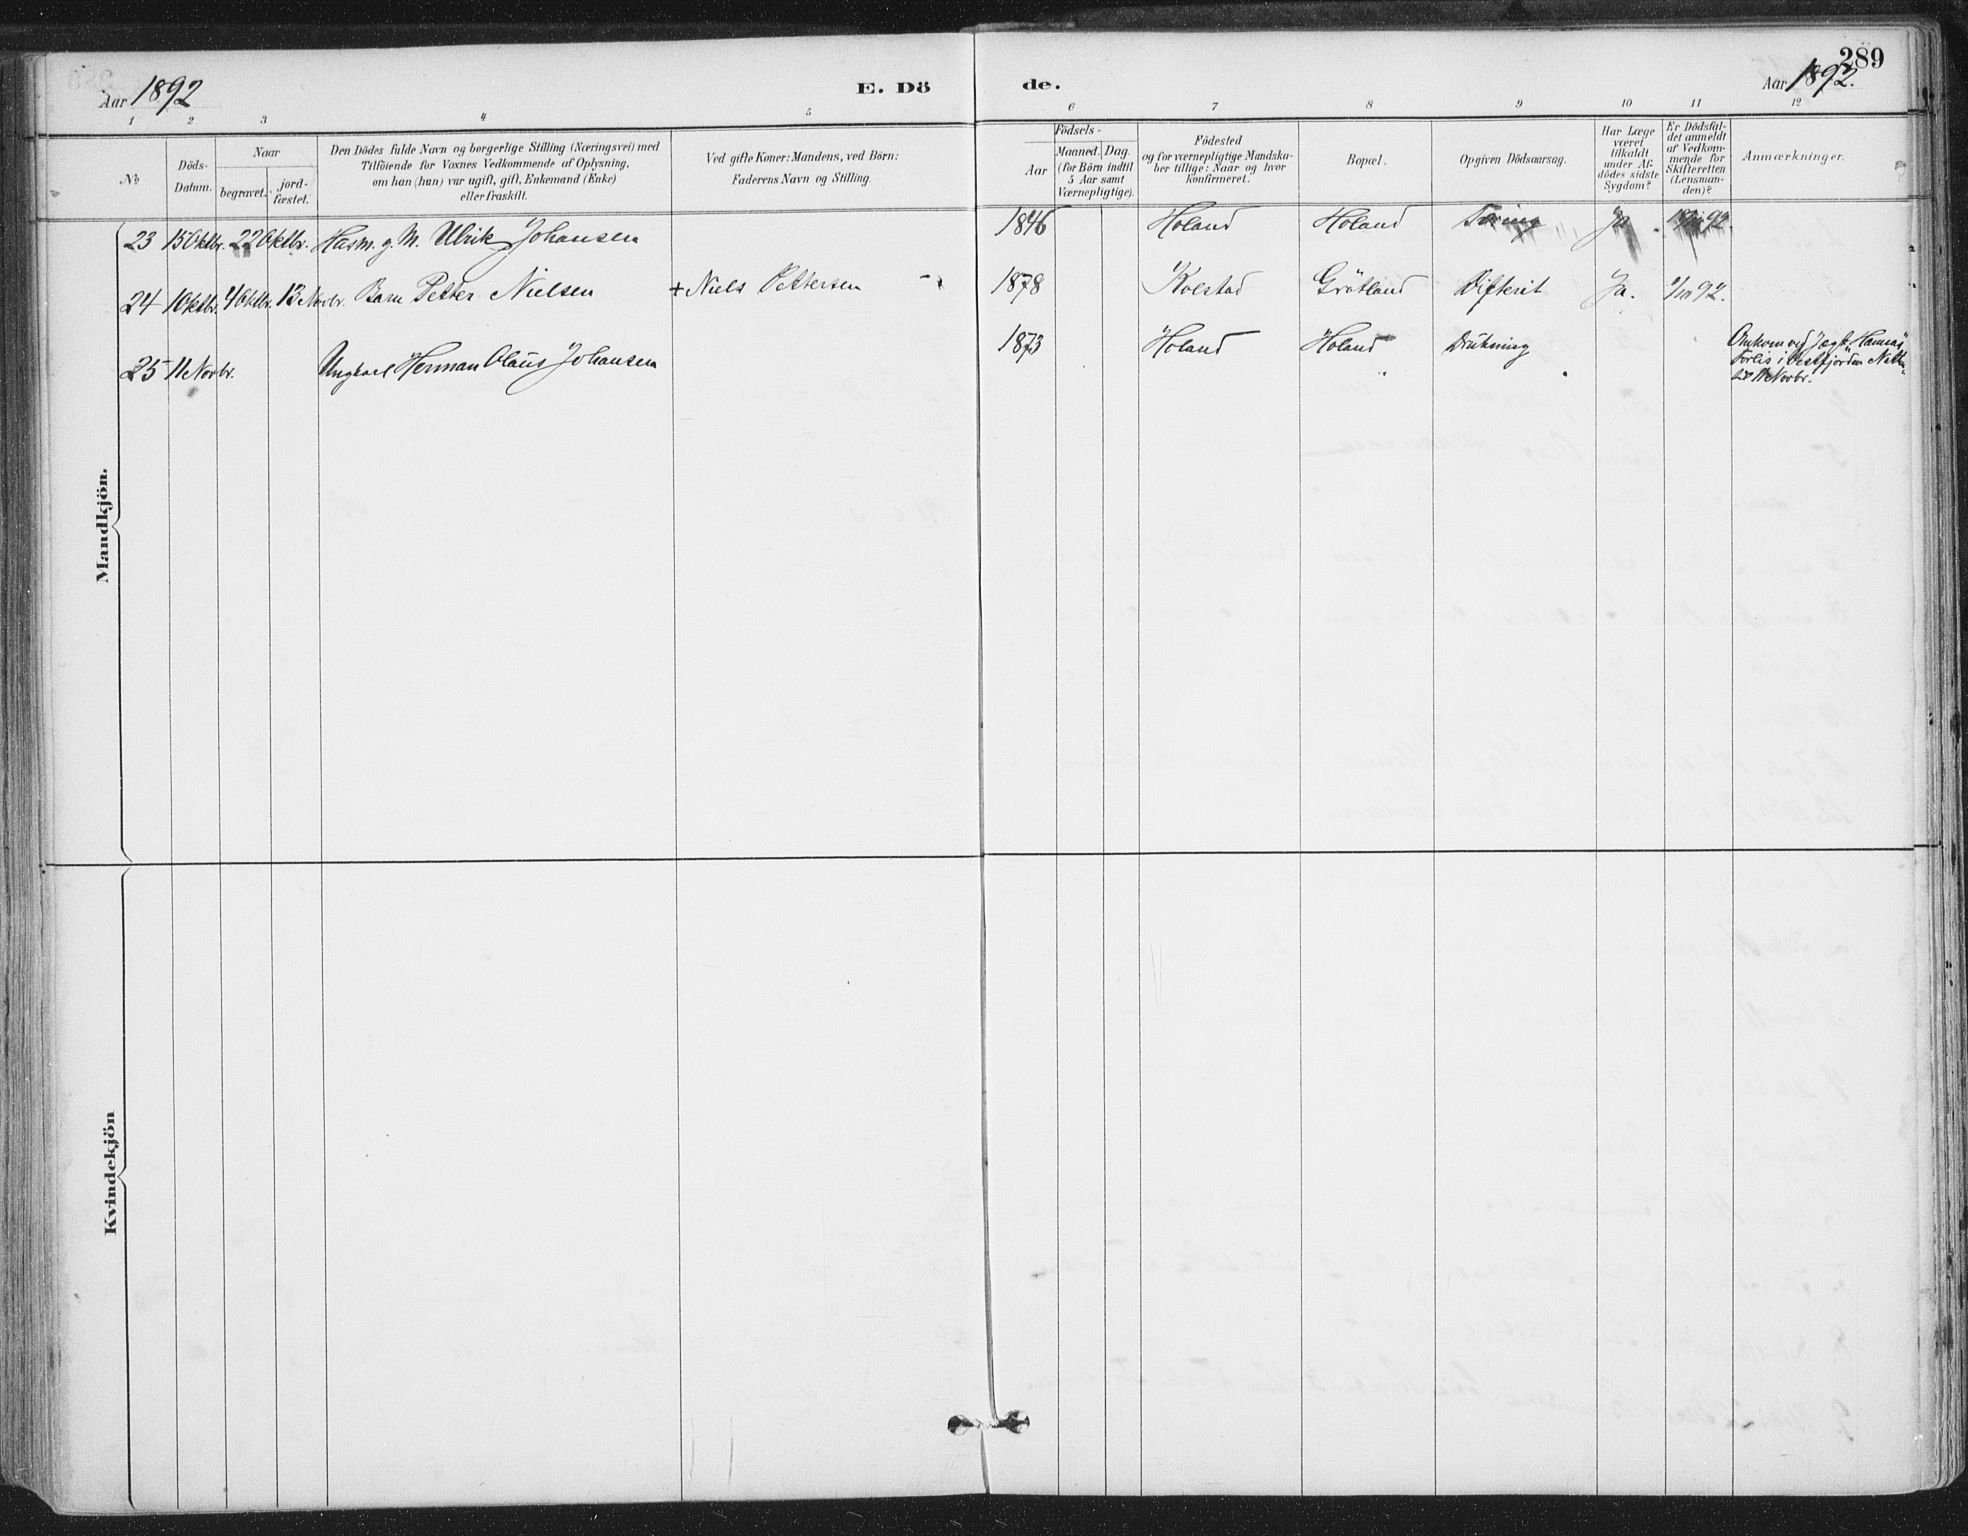 289
Aar 1892 E. Dö de. Aar 1892.
1 2 3 4 5 6 7 8 9 10 11 12
No
Döds-
Datum.
Naar
begravet.
jord-
fæstet.
Den Dödes fulde Navn og borgerlige Stilling (Næringsvei) med
Tilföiende for Voxnes Vedkommende af Oplysning,
om han (hun) var ugift, gift, Enkemand (Enke)
eller fraskilt.
Ved gifte Koner: Mandens, ved Börn:
Faderens Navn og Stilling.
Födsels-
Aar
Maaned. Dag.
(for Börn indtil
5 Aar samt
Værnepligtige).
Födested
og for værnepligtige Mandska-
ber tillige: Naar og hvor
konfirmeret.
Bopæl.
Opgiven Dödsaarsag.
Har Læge
været
tilkaldt
under Af-
dödes sidste
Sygdom?
Er Dödsfal-
det anmeldt
af Vedkom-
mende for
Skifteretten
(Lensman-
den)?
Anmærkninger.
Mandkjön.
23 15 Oktbr. 22 Oktbr. Husm. g. M. Ulrik Johansen 1846 Holand Holand Tæring Ja
24 1 Oktbr. 4 Oktbr. 13 Novbr. Barn Petter Nielsen + Niels Pettersen 1878 Kolstad Grötland Difterit Ja. 1/10 92.
25 11 Novbr. Ungkarl Herman Olaus Johansen 1873 Holand Holand Drukning Omkom ved Jægt "Hannas"
Forlis i Vestfjorden Natten
til 11 Novbr.
Kvindekjön